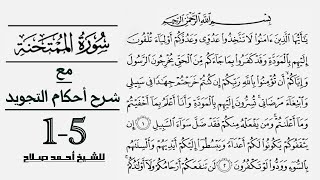 بِسْمِ ٱللَّهِ ٱلرَّحْمَٰنِ ٱلرَّحِيمِ
يَٰٓأَيُّهَا ٱلَّذِينَ ءَامَنُوا۟ لَا تَتَّخِذُوا۟ عَدُوِّى وَعَدُوَّكُمْ أَوْلِيَآءَ تُلْقُونَ
إِلَيْهِم بِٱلْمَوَدَّةِ وَقَدْ كَفَرُوا۟ بِمَا جَآءَكُم مِّنَ ٱلْحَقِّ يُخْرِجُونَ ٱلرَّسُولَ
وَإِيَّاكُمْ أَن تُؤْمِنُوا۟ بِٱللَّهِ رَبِّكُمْ إِن كُنتُمْ خَرَجْتُمْ جِهَٰدًا فِى سَبِيلِى
وَٱبْتِغَآءَ مَرْضَاتِى تُسِرُّونَ إِلَيْهِم بِٱلْمَوَدَّةِ وَأَنَا۠ أَعْلَمُ بِمَآ أَخْفَيْتُمْ
وَمَآ أَعْلَنتُمْ وَمَن يَفْعَلْهُ مِنكُمْ فَقَدْ ضَلَّ سَوَآءَ ٱلسَّبِيلِ ١ إِن
يَثْقَفُوكُمْ يَكُونُوا۟ لَكُمْ أَعْدَآءً وَيَبْسُطُوٓا۟ إِلَيْكُمْ أَيْدِيَهُمْ وَأَلْسِنَتَهُم
بِٱلسُّوٓءِ وَوَدُّوا۟ لَوْ تَكْفُرُونَ ٢ لَن تَنفَعَكُمْ أَرْحَامُكُمْ وَلَآ أَوْلَٰدُكُمْ
سُورَةُ الْمُمْتَحَنَةِ
مع
شرح أحكام التجويد
1-5
للشيخ أحمد صلاح